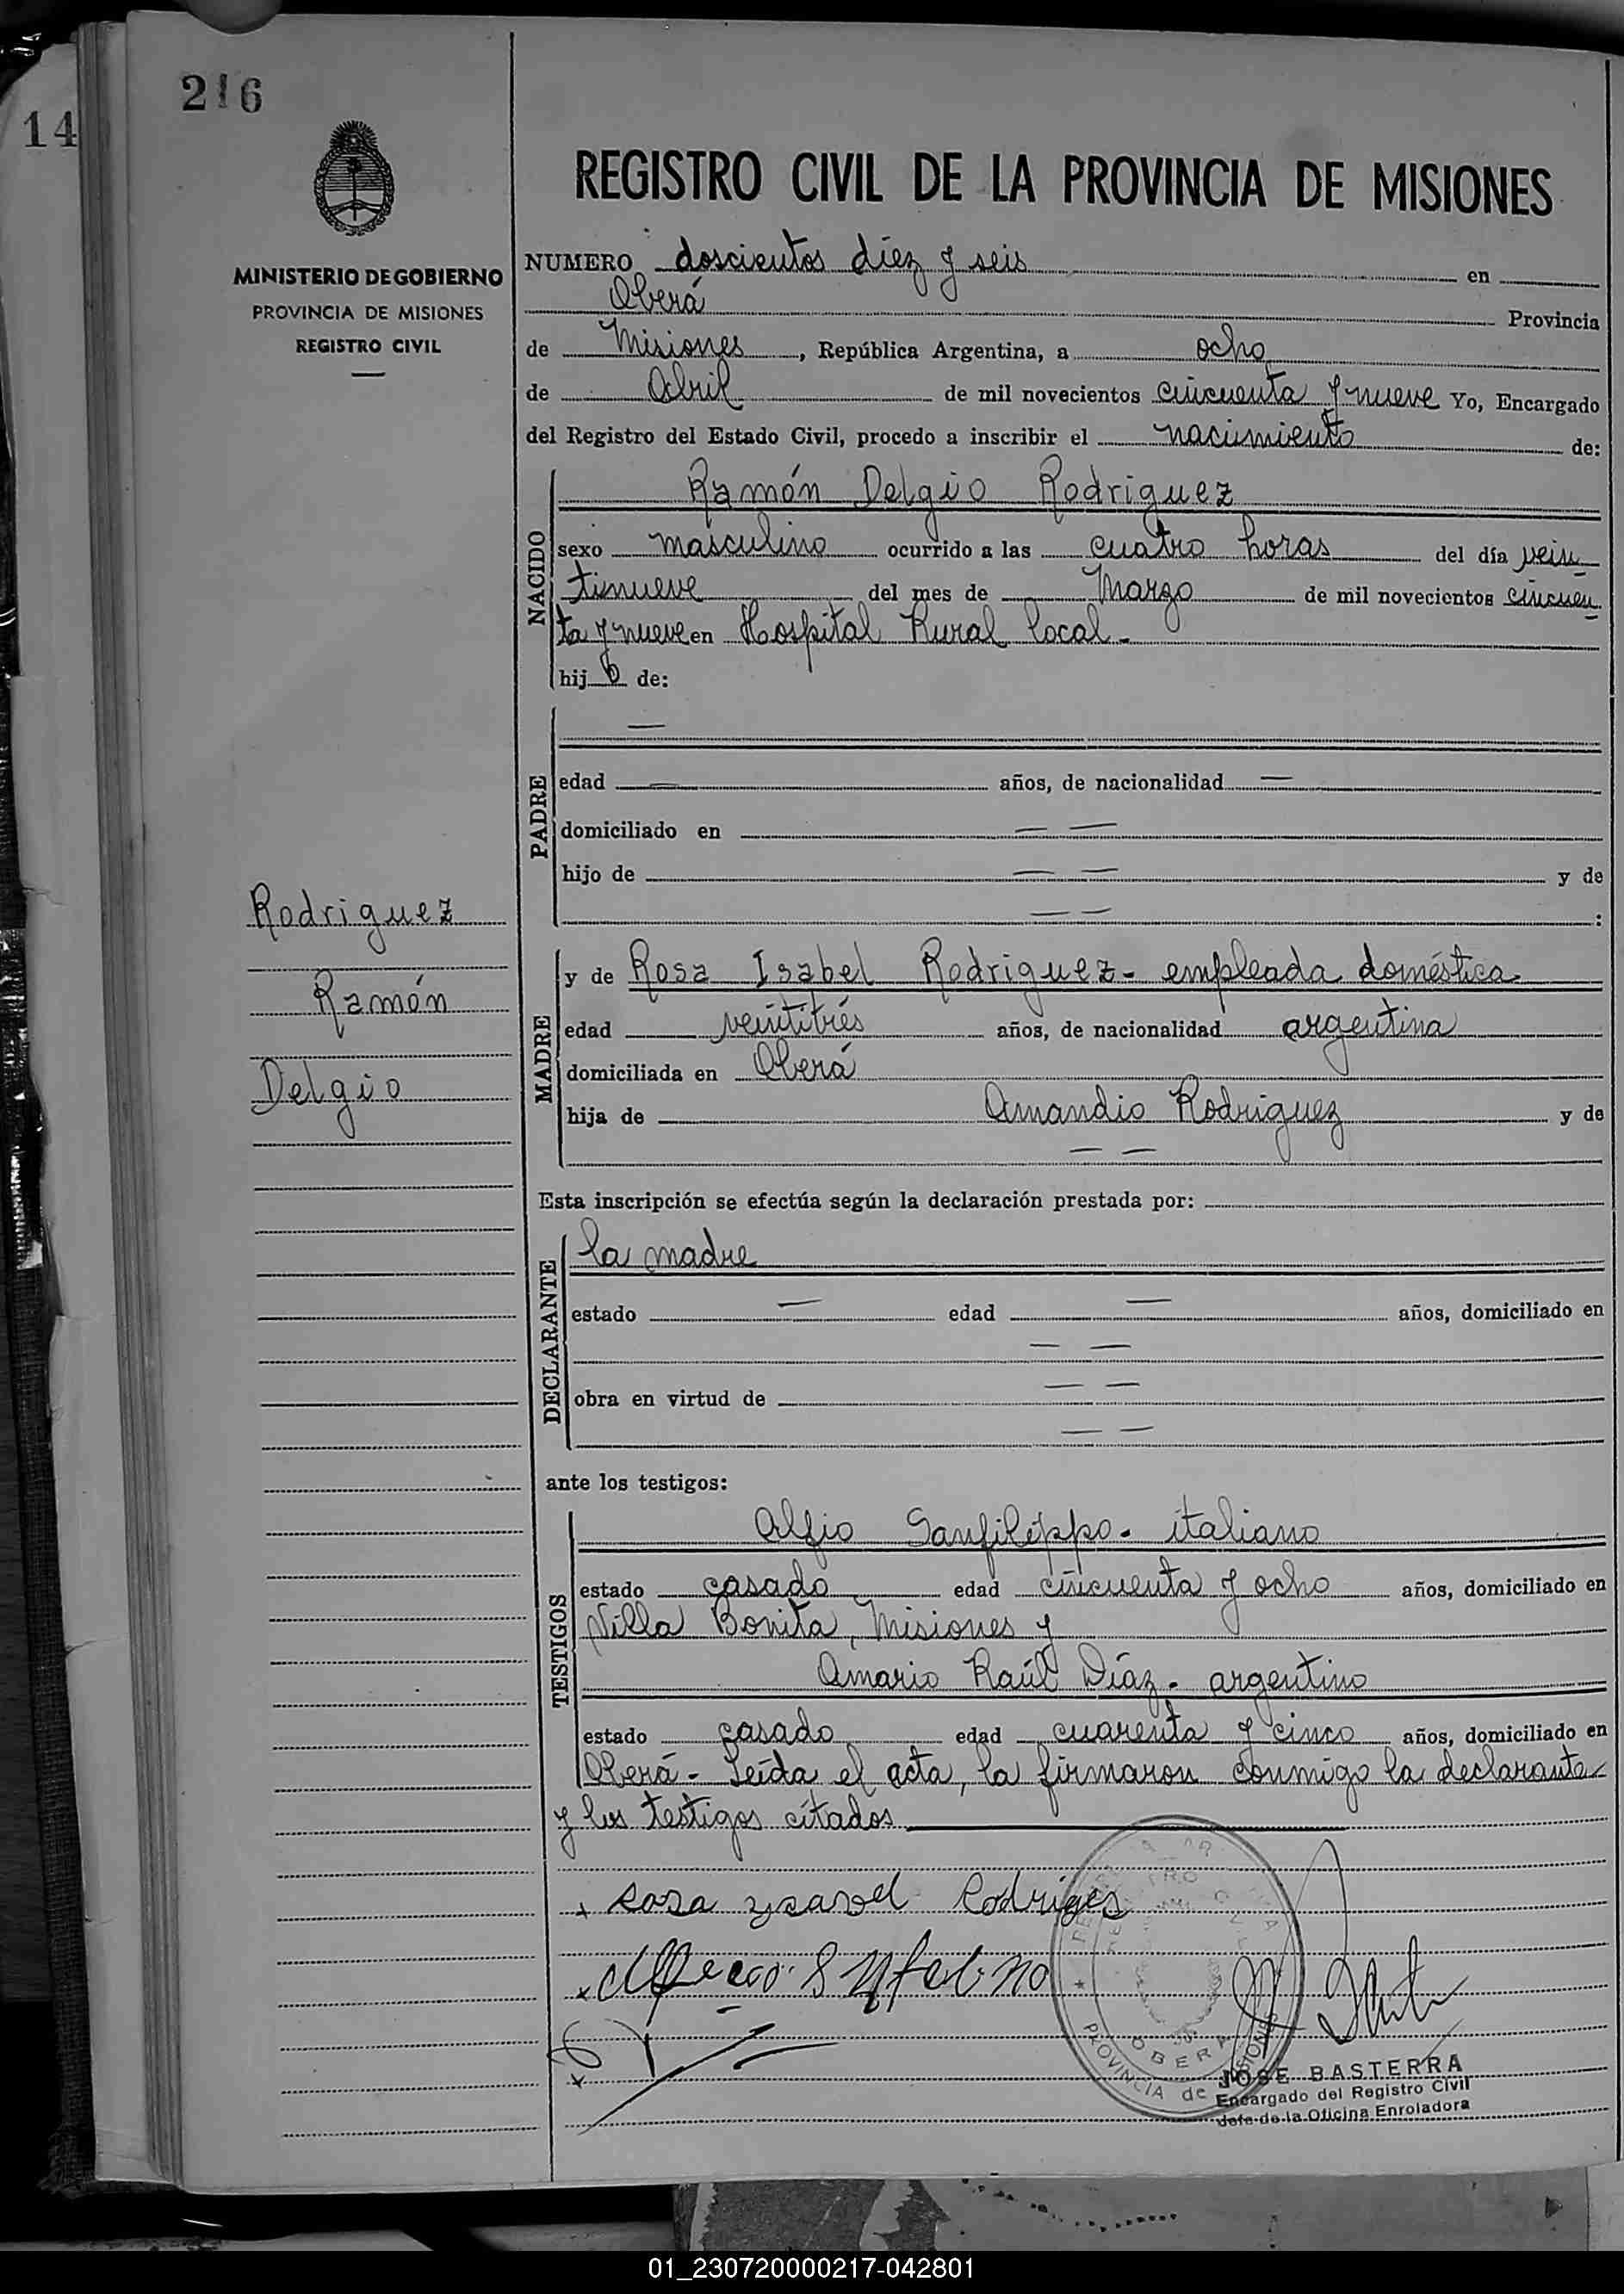 14
216
MINISTERIO DE GOBIERNO
PROVINCIA DE MISIONES
REGISTRO CIVIL
REGISTRO CIVIL DE LA PROVINCIA DE MISIONES
NUMERO doscientos diez y seis en
Oberá Provincia
de Misiones, República Argentina, a ocho
de Abril de mil novecientos cincuenta y nueve Yo, Encargado
del Registro del Estado Civil, procedo a inscribir el nacimiento de:
NACIDO
Ramón Delgio Rodriguez
sexo masculino ocurrido a las cuatro horas del día vein
tinueve del mes de Marzo de mil novecientos cincuen
ta y nueve en Hospital Rural local -
hijo de:
PADRE
—
edad — años, de nacionalidad —
domiciliado en — —
hijo de — — y de
— — :
Rodriguez
Ramón
Delgio
MADRE
y de Rosa Isabel Rodriguez - empleada doméstica
edad veintitrés años, de nacionalidad argentina
domiciliada en Oberá
hija de Amandio Rodriguez y de
— —
Esta inscripción se efectúa según la declaración prestada por:
DECLARANTE
la madre
estado — edad — años, domiciliado en
— —
obra en virtud de — —
— —
ante los testigos:
TESTIGOS
Alfio Sanfilippo - italiano
estado casado edad cincuenta y ocho años, domiciliado en
Villa Bonita, Misiones y
Amario Raúl Díaz - argentino
estado casado edad cuarenta y cinco años, domiciliado en
Oberá - Leída el acta, la firmaron conmigo la declarante
y los testigos citados
Rosa ysavel Rodriges
OBERA
PROVINCIA de MISIONES
JOSE BASTERRA
Encargado del Registro Civil
Jefe de la Oficina Enroladora
01_230720000217-042801